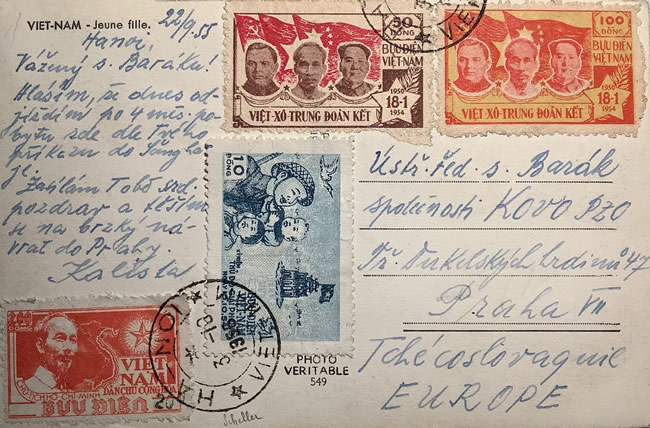 VIET-NAM - Jeune fille.
22/9.55
Hanoi,
Vážený s. Baráku!
Hlásím, že dnes od-
jíždím po 4 měs. po-
bytu zde dle Tvého
příkazu do Šangha-
je.
Zasílám Tobě srd.
pozdrav a těším
se na brzký ná-
vrat do Prahy.
Kalista
50
ĐỒNG
BƯU ĐIỆN
VIỆT-NAM
1950
18-1
1954
VIỆT-XÔ-TRUNG ĐOÀN KẾT
100
ĐỒNG
BƯU ĐIỆN
VIỆT-NAM
1950
18-1
1954
VIỆT-XÔ-TRUNG ĐOÀN KẾT
10
ĐỒNG
Ústř. Řed. s. Barák
společnosti KOVO PZO
Tř. Dukelských hrdinů 47
Praha VII
Tchécoslovaquie
EUROPE
CHỦ TỊCH HỒ-CHÍ-MINH
VIỆT
NAM
DÂN CHỦ CỘNG HÒA
BƯU ĐIỆN
HANOI
PHOTO
VERITABLE
549
Scheller